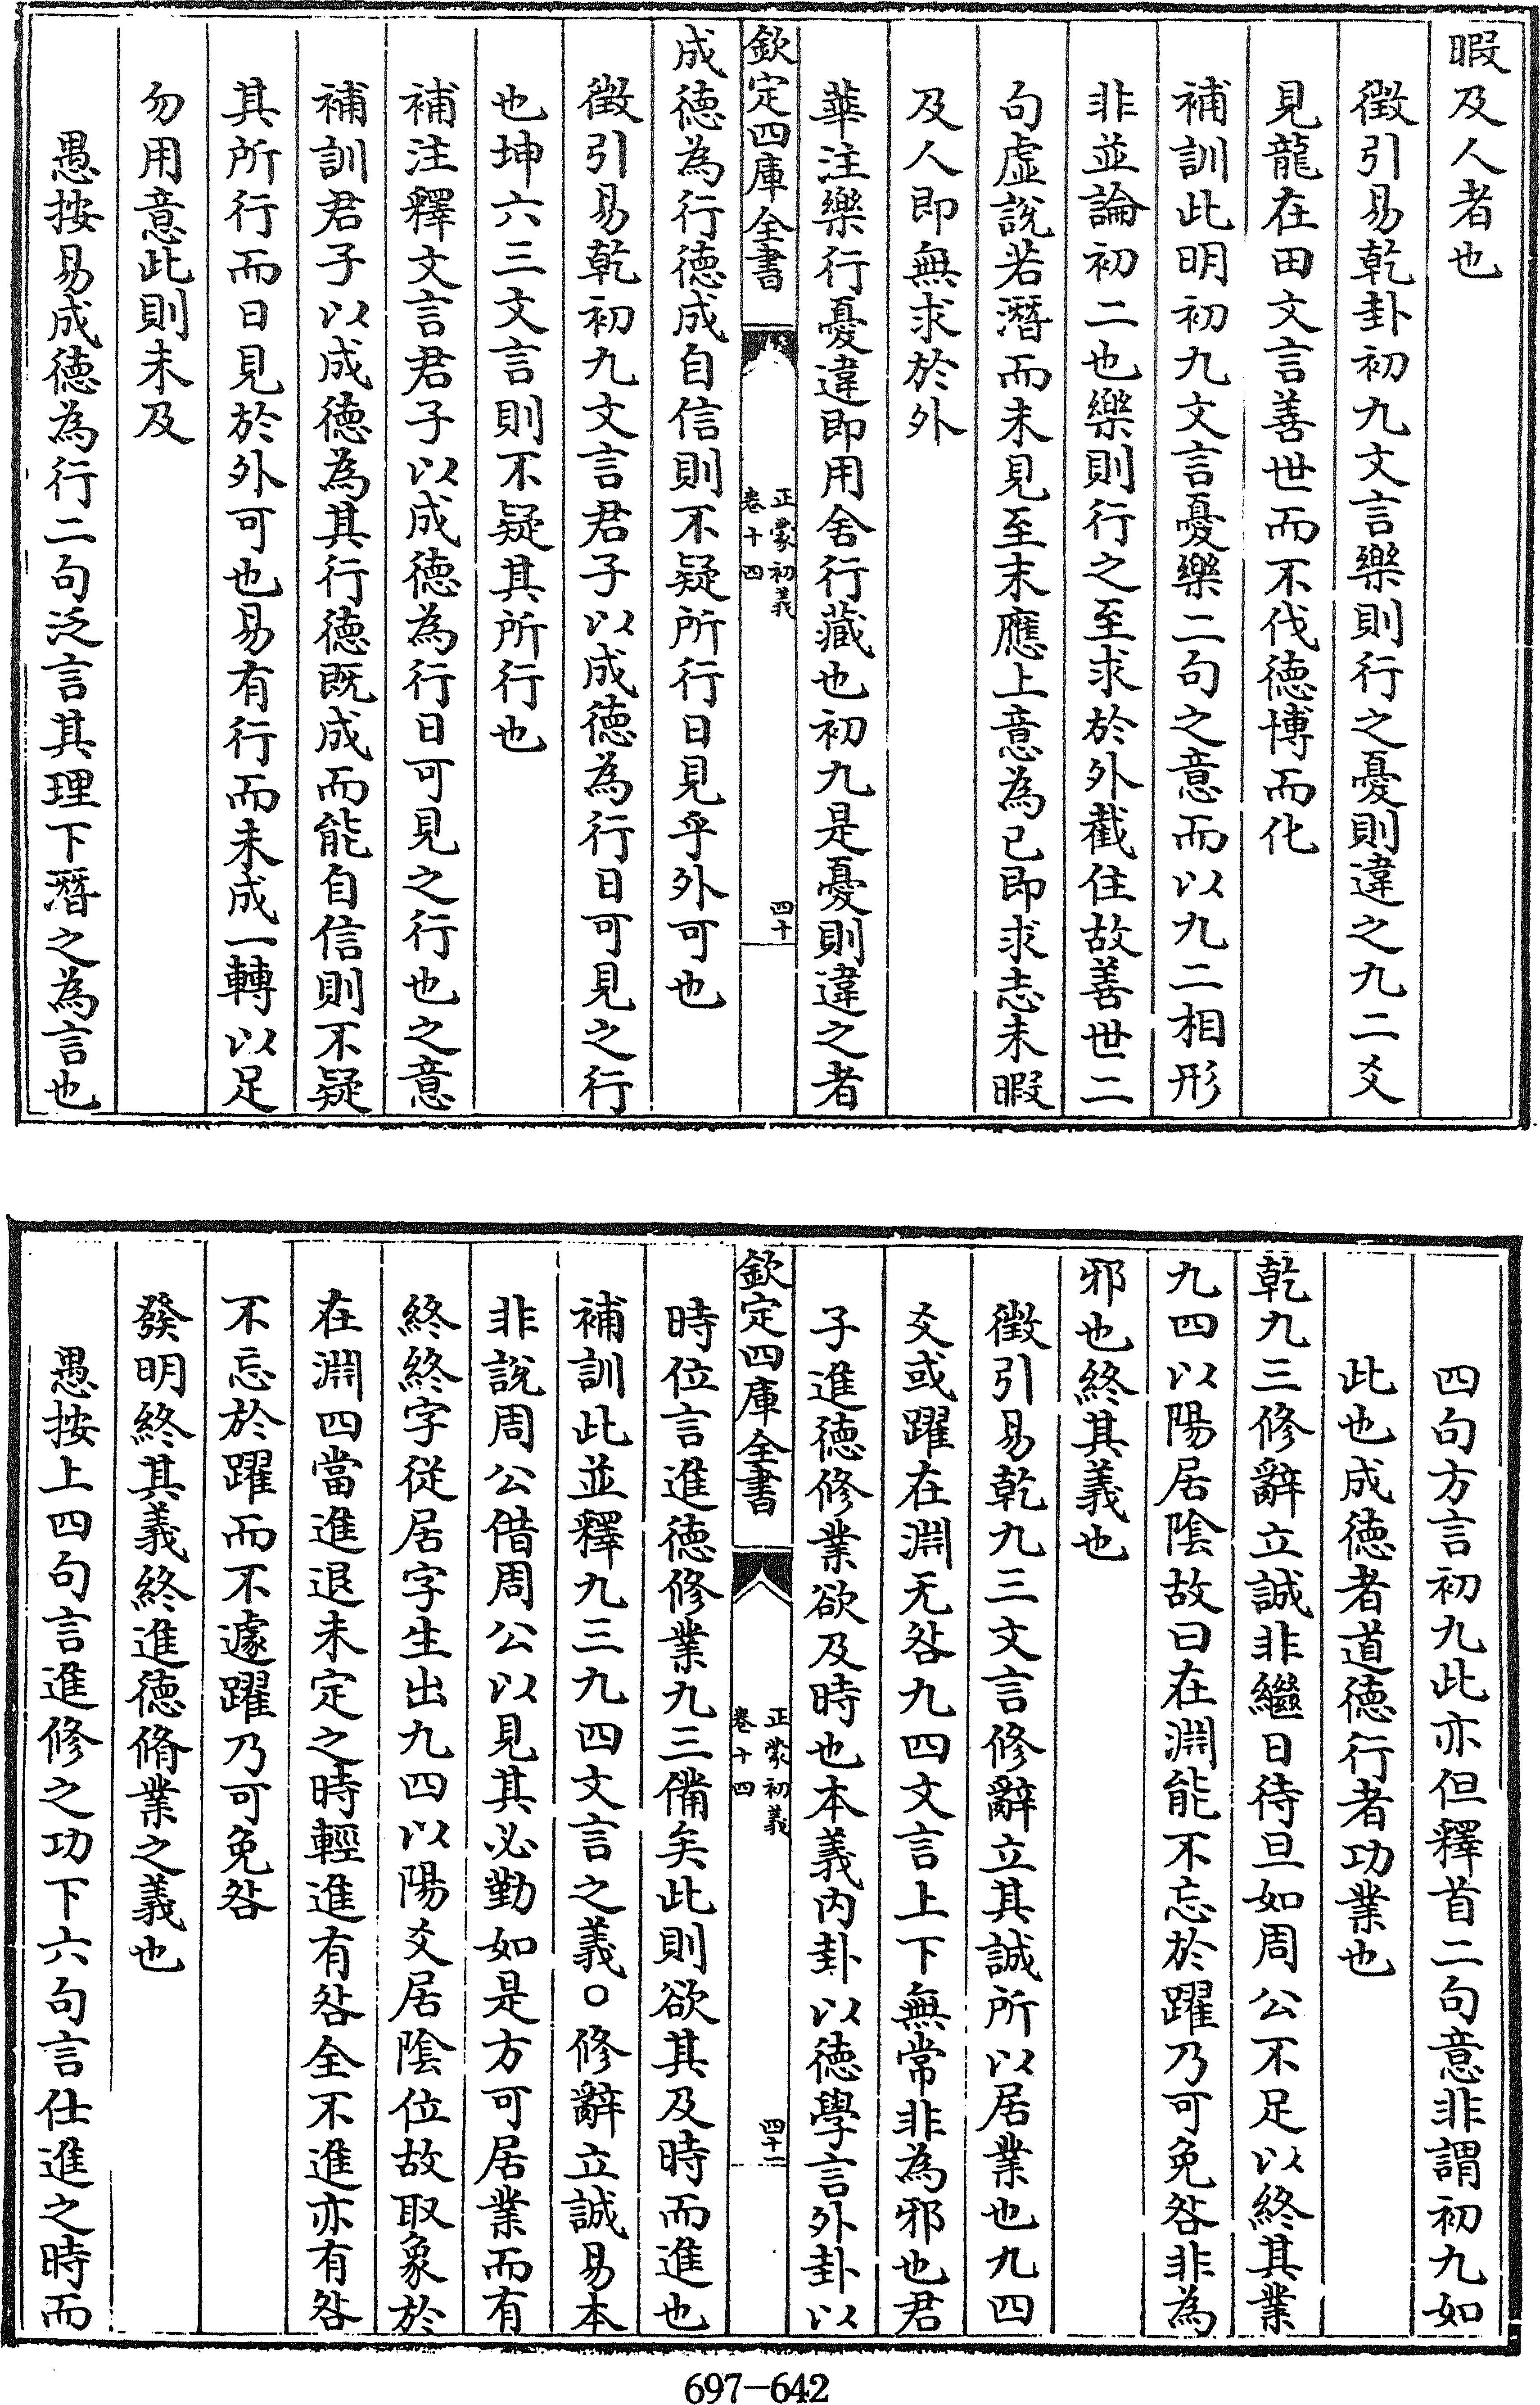 暇及人者也
徵引易乾卦初九文言樂則行之憂則違之九二爻
見龍在田文言善世而不伐德博而化
補訓此明初九文言憂樂二句之意而以九二相形
非並論初二也樂則行之至求於外截住故善世二
句虛說若潛而未見至末應上意為已即求志未暇
及人即無求於外
華注樂行憂違即用舍行藏也初九是憂則違之者
欽定四庫全書
正蒙初義
卷十四
四十
成德為行德成自信則不疑所行日見乎外可也
徵引易乾初九文言君子以成德為行日可見之行
也坤六三文言則不疑其所行也
補注釋文言君子以成德為行日可見之行也之意
補訓君子以成德為其行德既成而能自信則不疑
其所行而日見於外可也易有行而未成一轉以足
勿用意此則未及
愚按易成德為行二句泛言其理下潛之為言也
四句方言初九此亦但釋首二句意非謂初九如
此也成德者道德行者功業也
乾九三修辭立誠非繼日待旦如周公不足以終其業
九四以陽居陰故曰在淵能不忘於躍乃可免咎非為
邪也終其義也
徵引易乾九三文言修辭立其誠所以居業也九四
爻或躍在淵无咎九四文言上下無常非為邪也君
子進德修業欲及時也本義內卦以德學言外卦以
欽定四庫全書
正蒙初義
卷十四
四十一
時位言進德修業九三備矣此則欲其及時而進也
補訓此並釋九三九四文言之義○修辭立誠易本
非說周公借周公以見其必勤如是方可居業而有
終終字從居字生出九四以陽爻居陰位故取象於
在淵四當進退未定之時輕進有咎全不進亦有咎
不忘於躍而不遽躍乃可免咎
發明終其義終進德脩業之義也
愚按上四句言進修之功下六句言仕進之時而
697-642